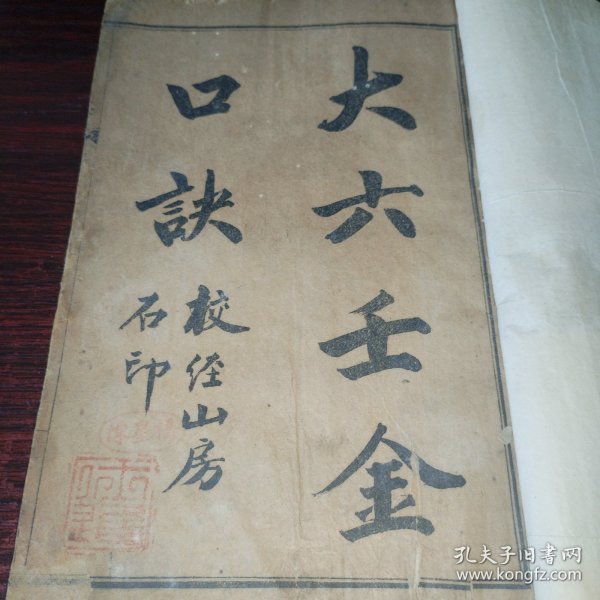 大六壬金
口訣
校经山房
石印
孔夫子旧书网
www.kongfz.com